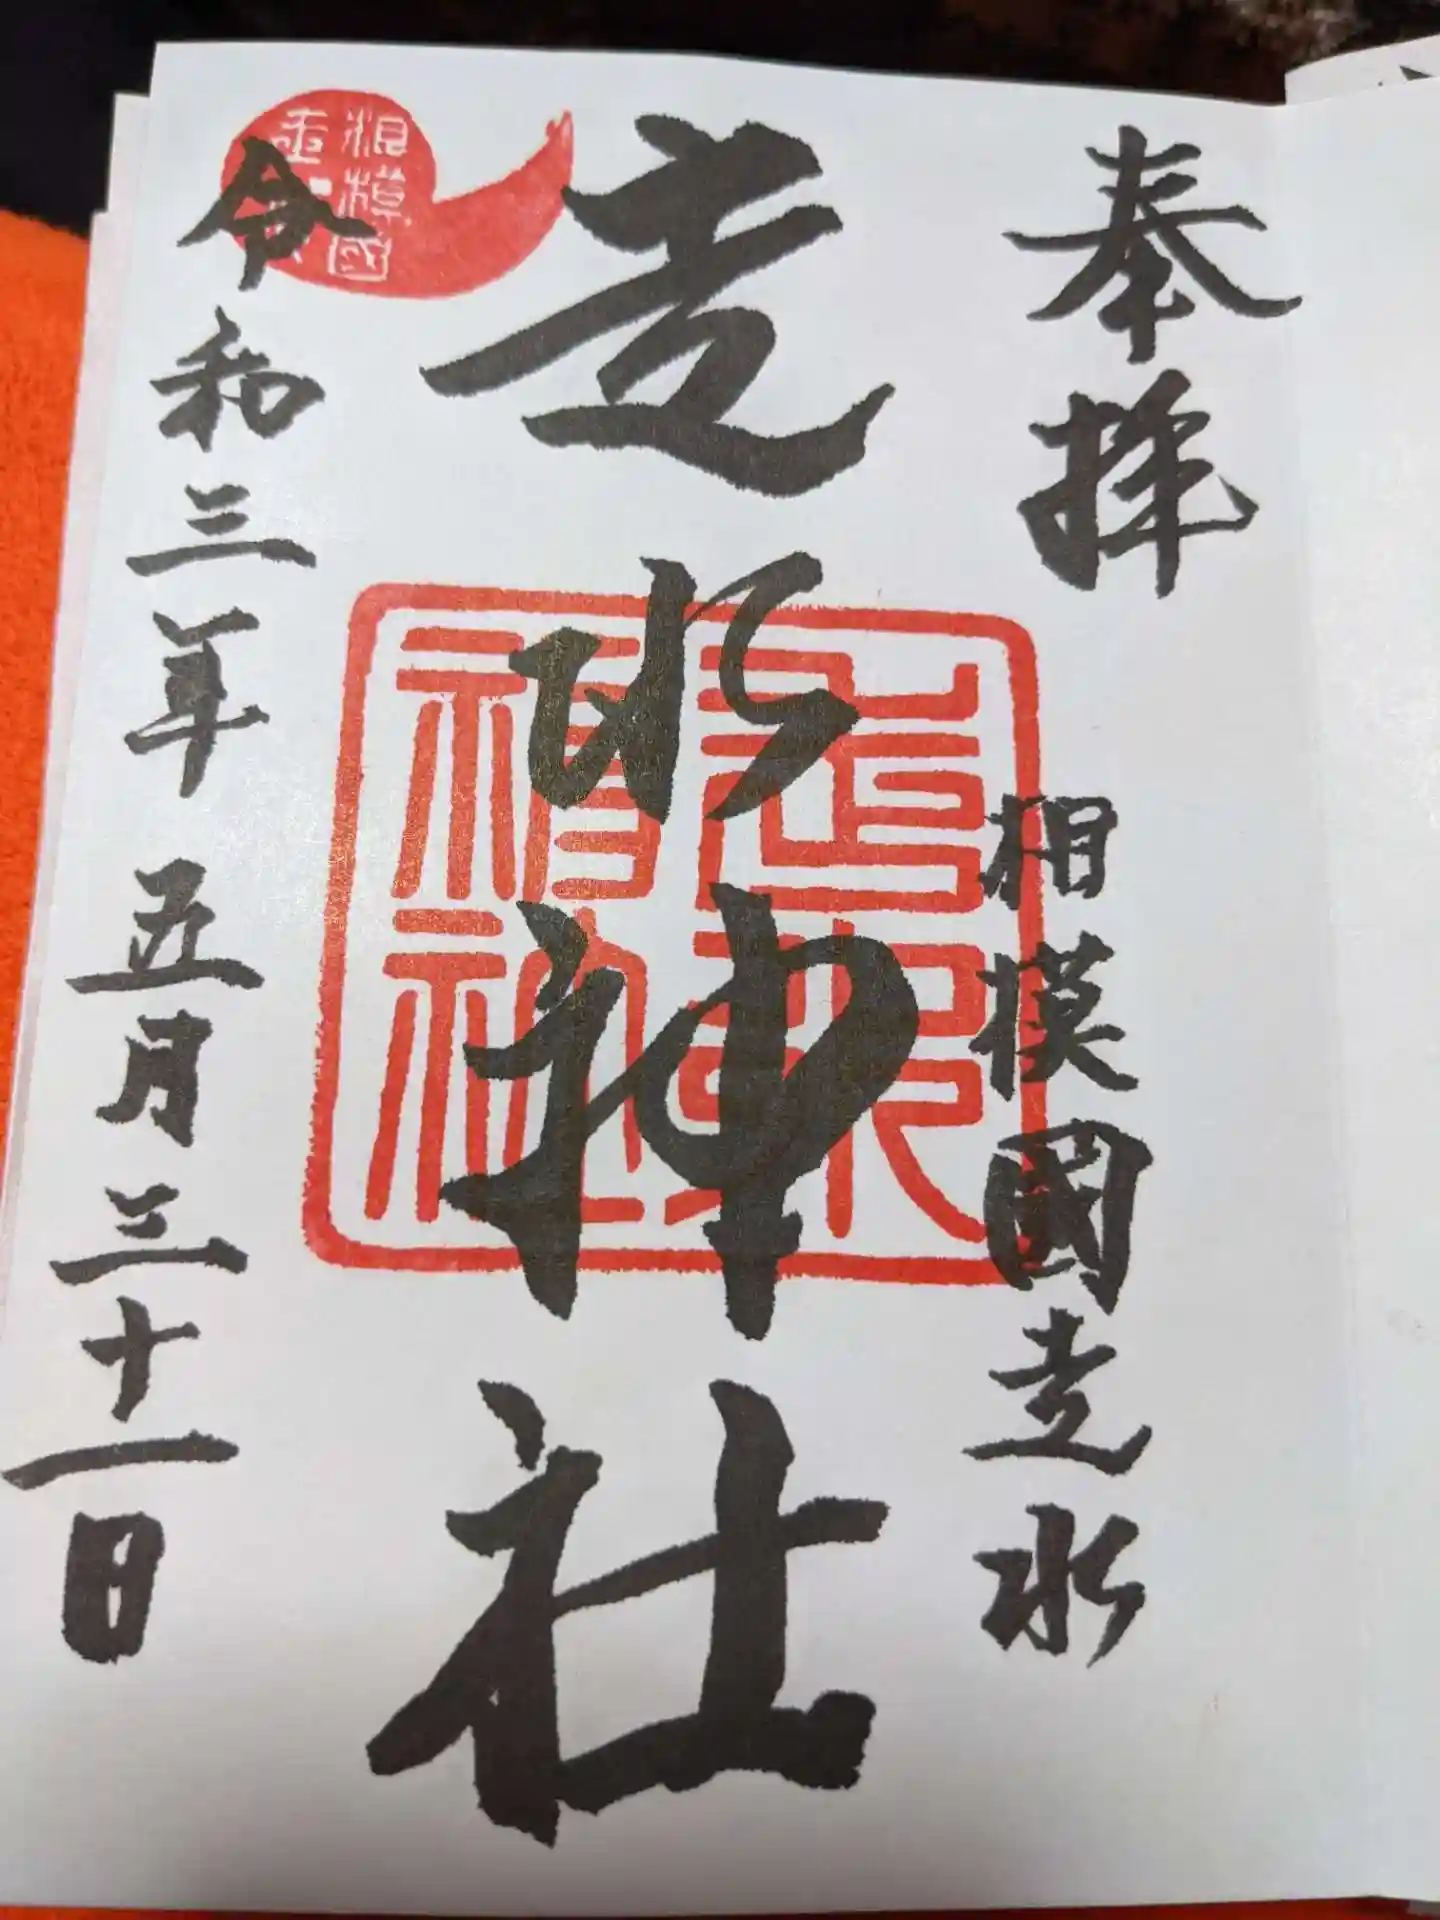 奉拝
相模國走水
走水神社
令和三年五月三十一日
相模國
走水神社